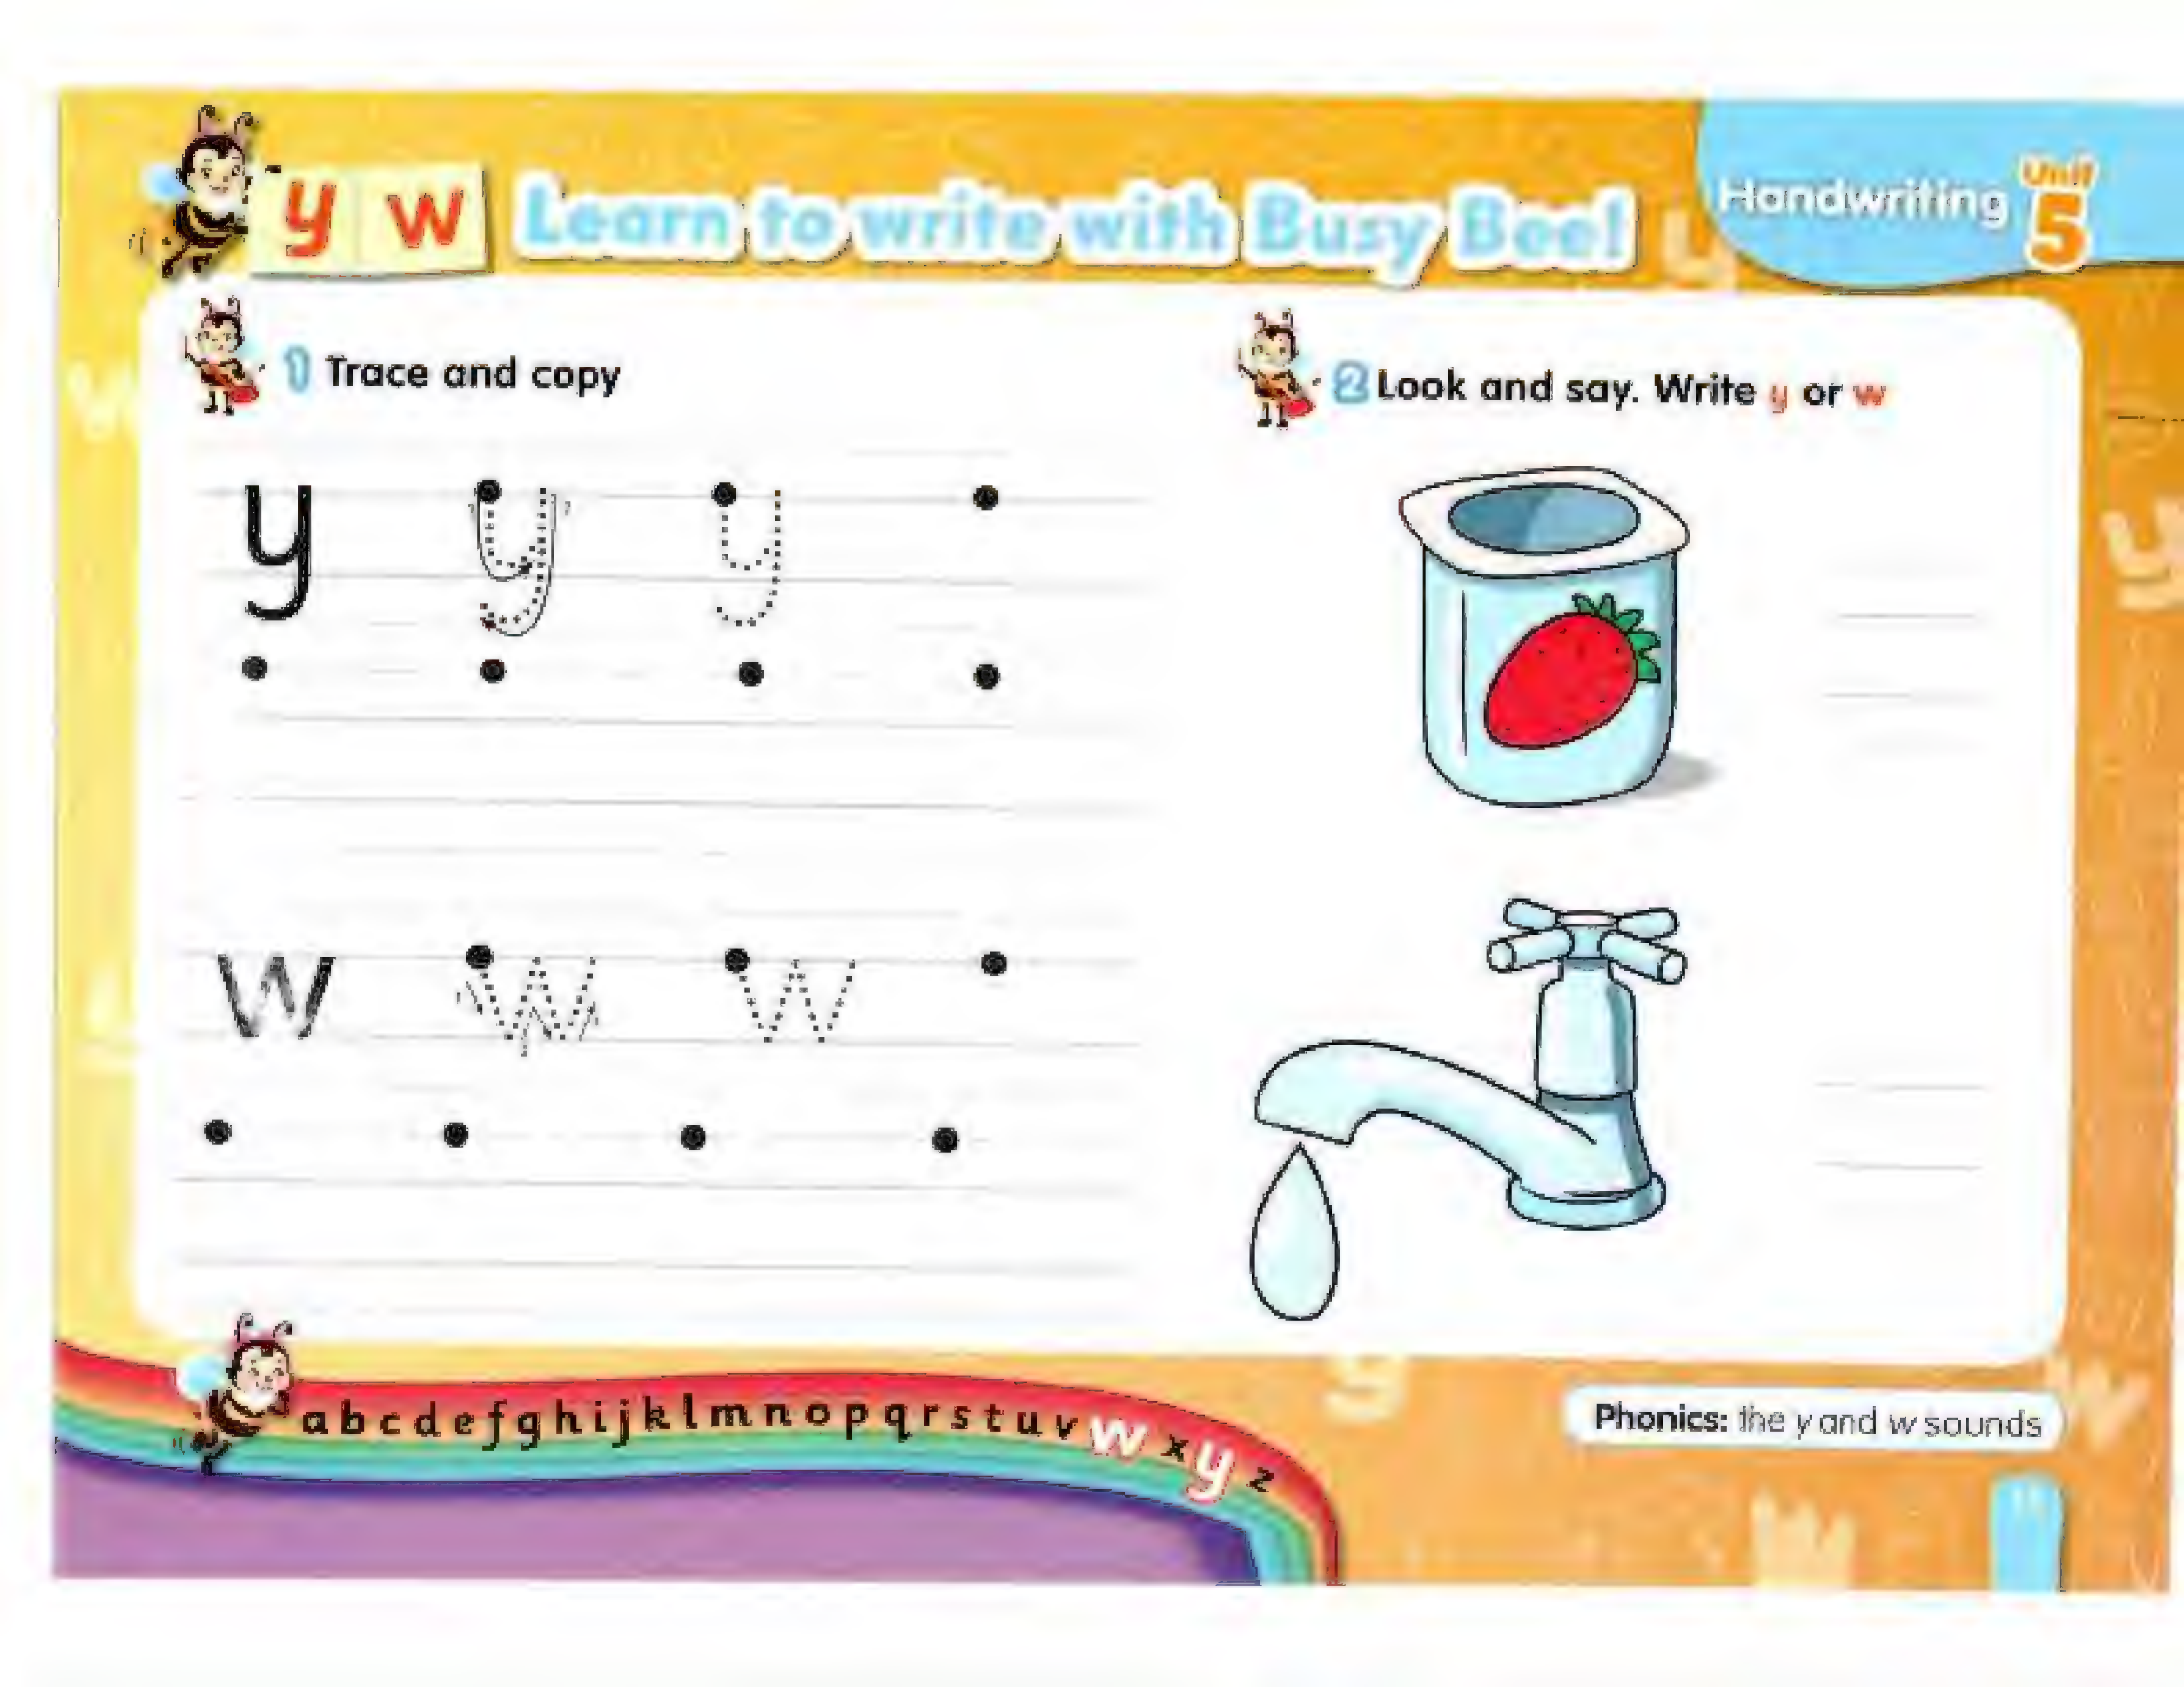 y w Learn to write with Busy Bee!
Handwriting Unit 5
1 Trace and copy
y y y
w w w
2 Look and say. Write y or w
a b c d e f g h i j k l m n o p q r s t u v w x y z
Phonics: the y and w sounds